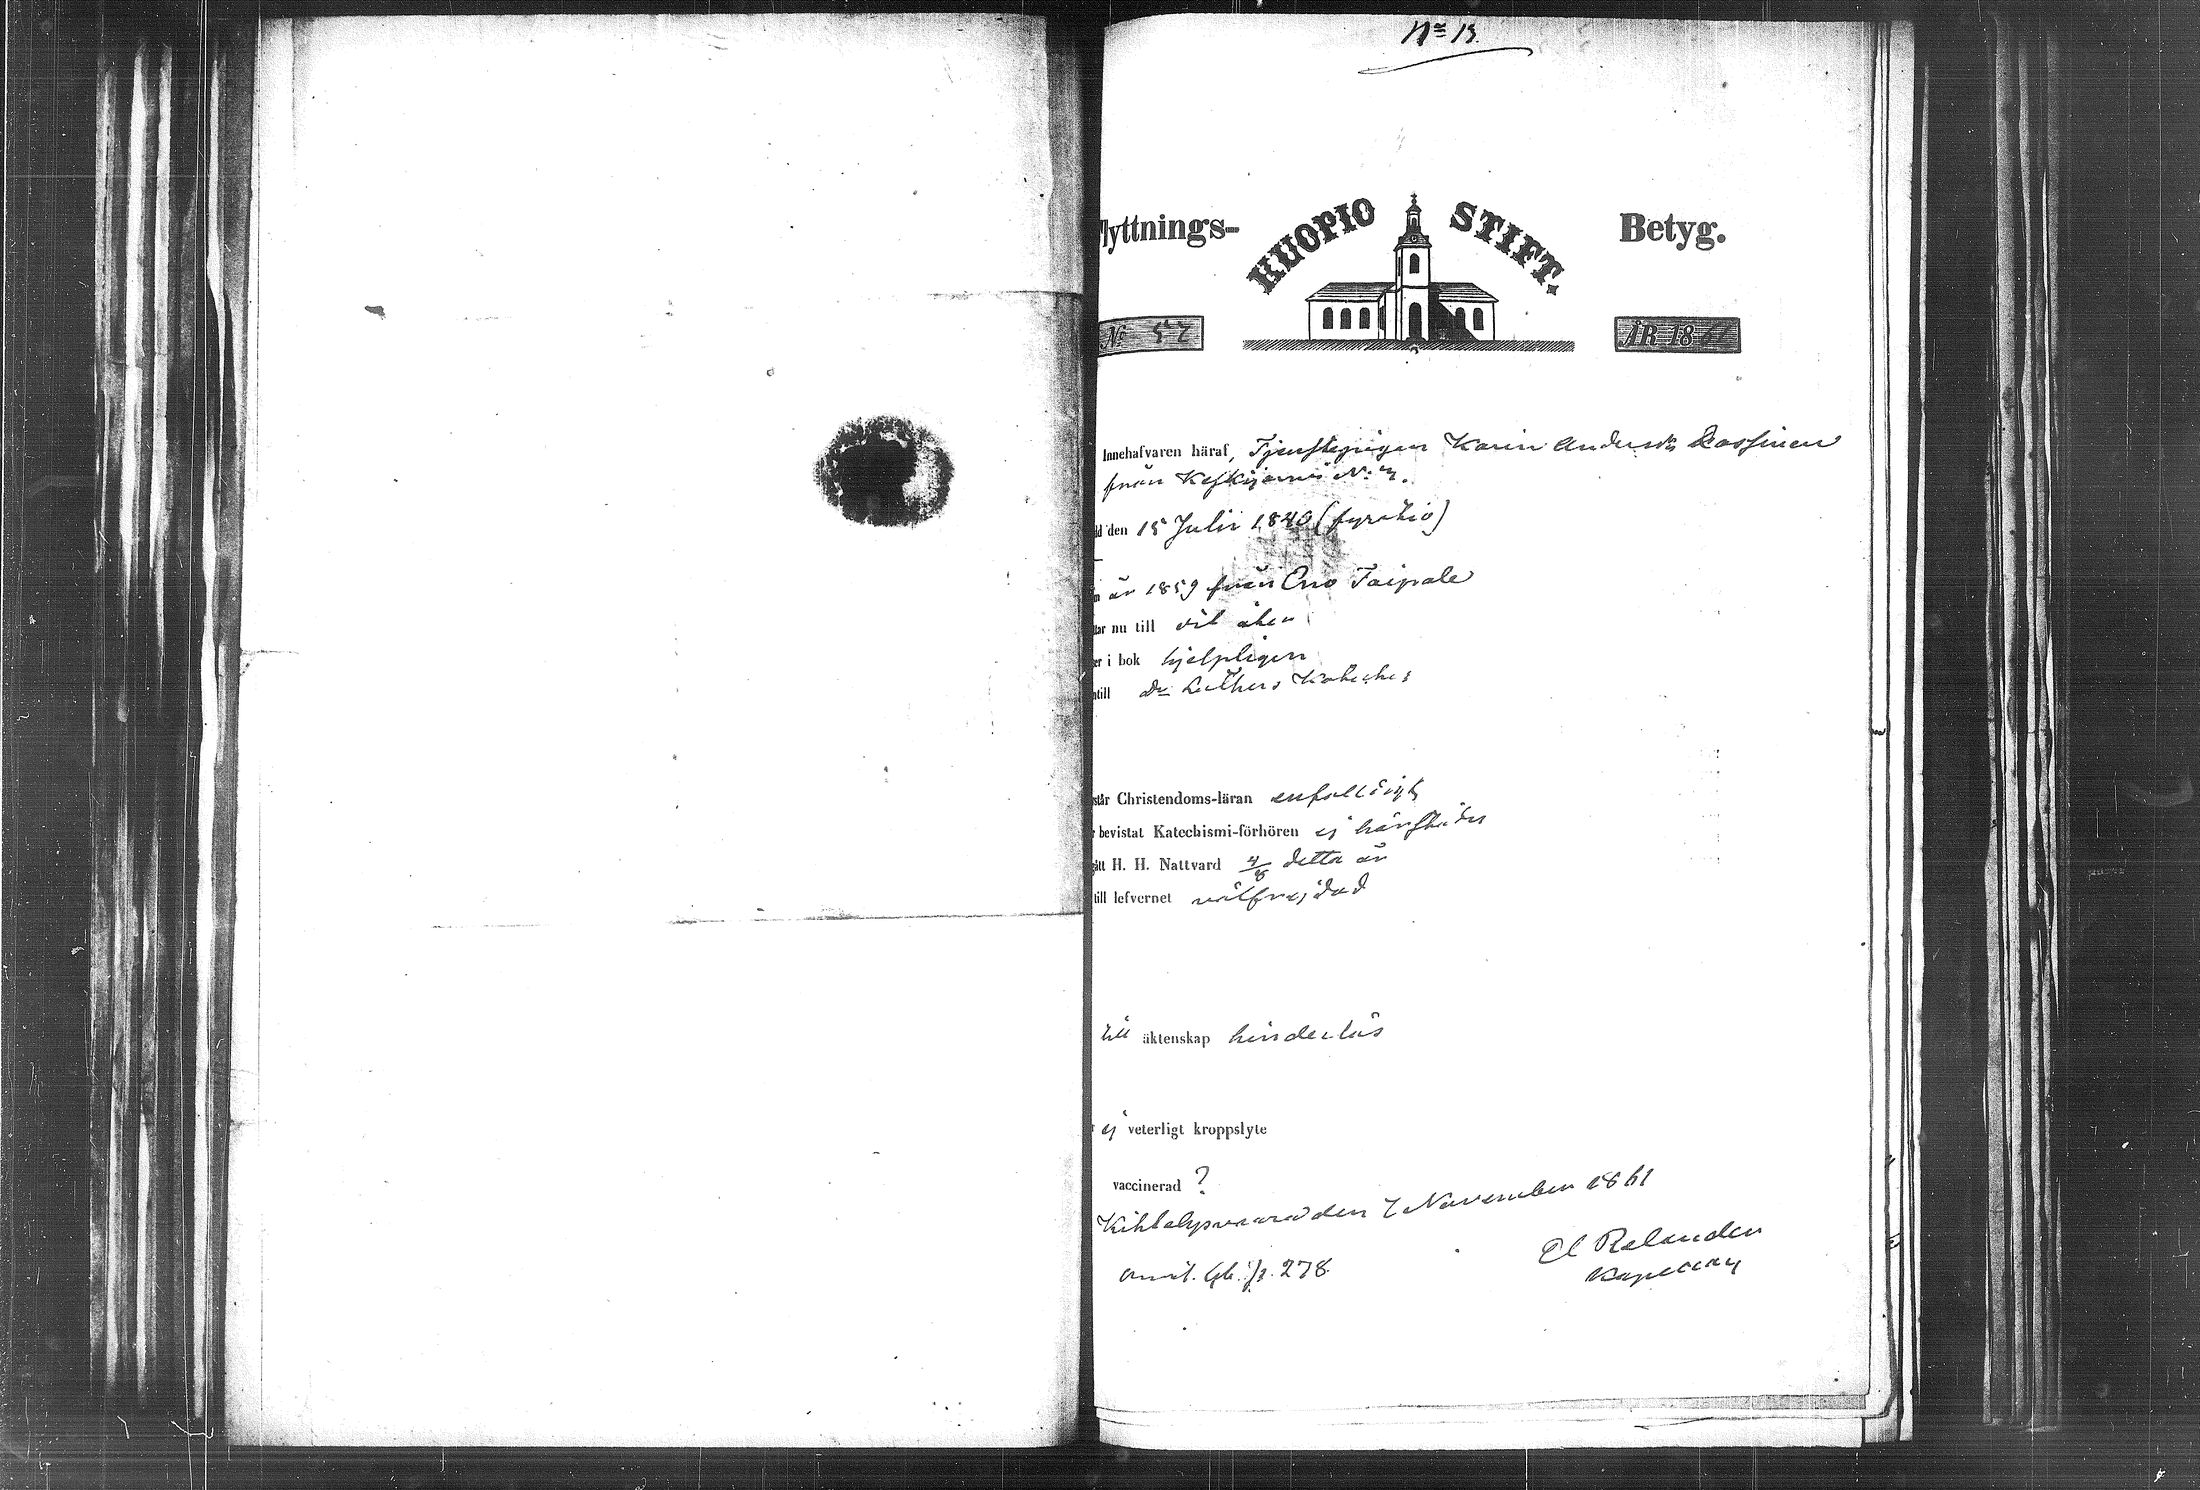 No 13.
lyttnings- KUOPIO STIFT. Betyg.
No 52 ÅR 1861
Innehafvaren häraf, Tjenstepigan Karin Andersdr
från No
den 15 Julii 1840 (fyratio)
år 1859 från Eno Taipale
nu till
i bok hjelpligen
till Dr Luthers Kateches
står Christendoms-läran enfalldigt
bevistat Katechismi-förhören ej
H. H. Nattvard 4/8 detta år
till lefvernet välfrejdad
till äktenskap hinderlös
ej veterligt kroppslyte
vaccinerad ?
Kihtelysvaara den 7 November 1861
p. 278.
El Relander
Kapellan